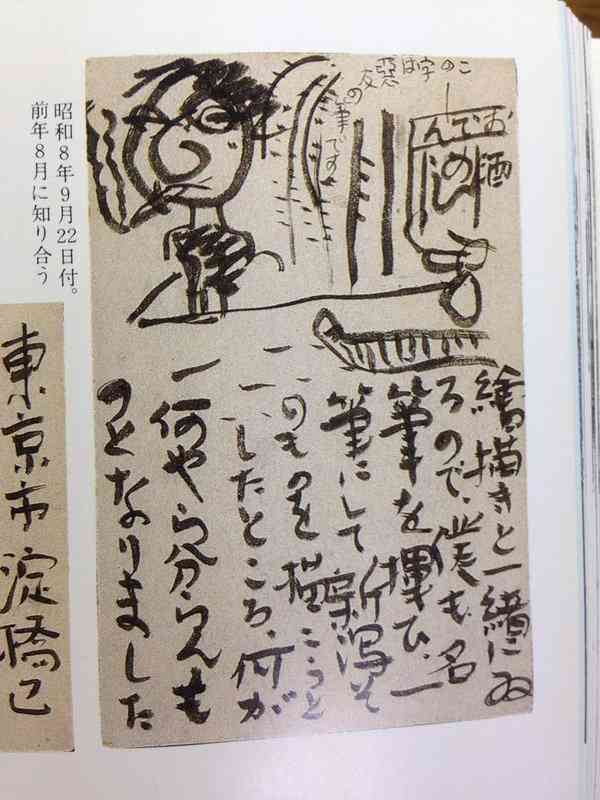 この字は惡
友の筆です
お酒
おでん
繪描きと一緒にゐ
るので、僕も名
筆を揮ひ、一
筆にして新潟そ
のものを描こうと
したところ、何が
何やら分らんも
のとなりました
昭和8年9月22日付。
前年8月に知り合う
東京市淀橋